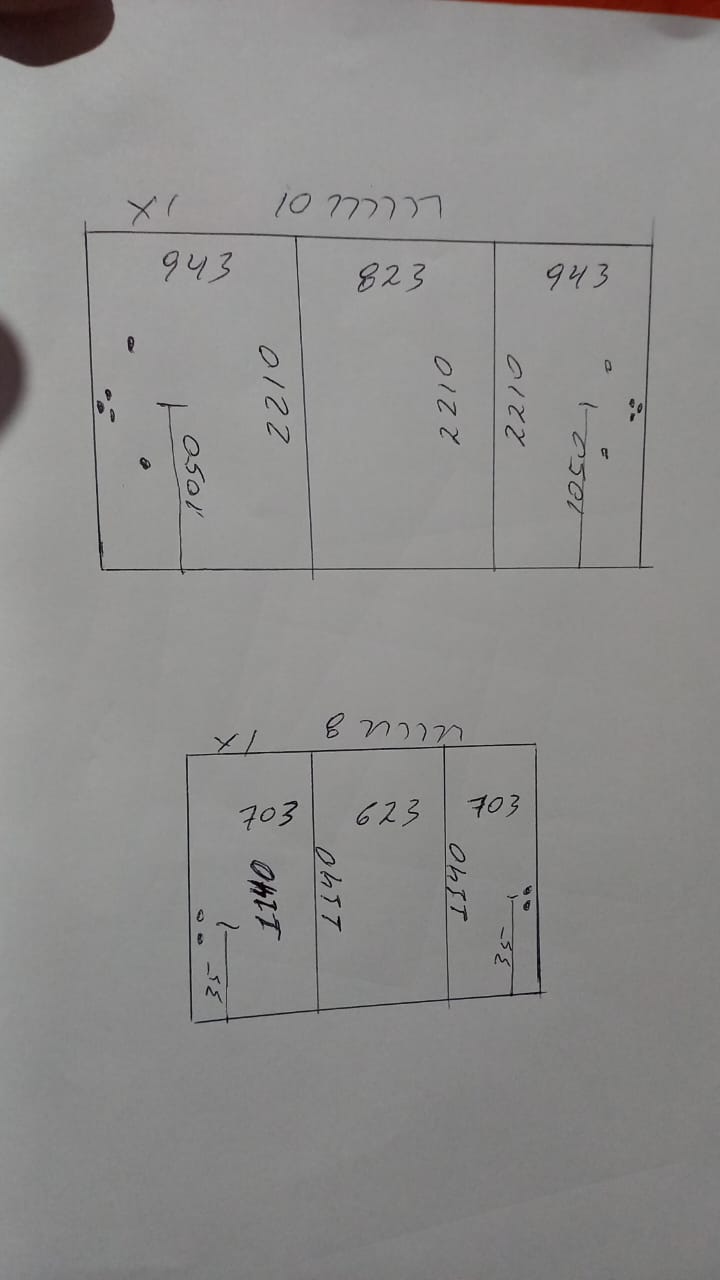 X1 10
943 823 943
2210 2210 2210
1050 1050
X1 8
703 623 703
1140 1140 1140
35 35